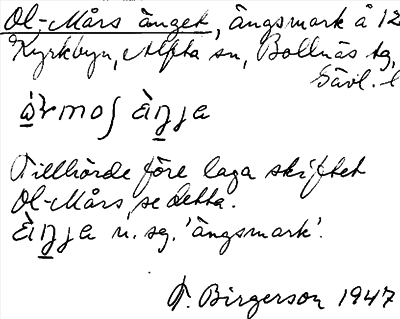 Ol-Mårs änget, ängsmark å 12
Kyrkbyn, Alfta sn, Bollnäs tg,
Gävl. l
Tillhörde före laga skiftet
Ol-Mårs, se detta.
n. sg. 'ängsmark'.
T. Birgerson 1947